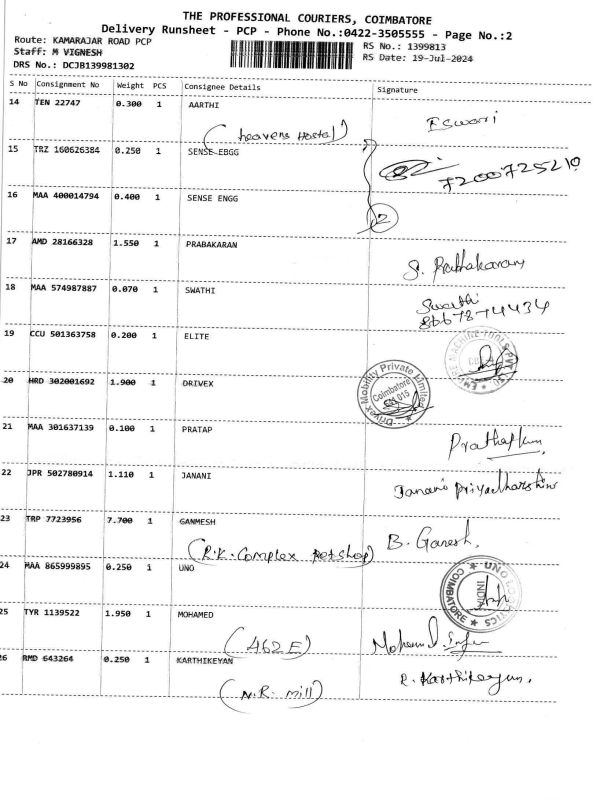 THE PROFESSIONAL COURIERS, COIMBATORE
Delivery Runsheet - PCP - Phone No.:0422-3505555 - Page No.:2
Route: KAMARAJAR ROAD PCP
RS No.: 1399813
Staff: M VIGNESH
RS Date: 19-Jul-2024
DRS No.: DCJB139981302
S No Consignment No Weight PCS Consignee Details Signature
14 TEN 22747 0.300 1 AARTHI Eswari
(heavens Hostel)
15 TRZ 160626384 0.250 1 SENSE EBGG
7200725210
16 MAA 400014794 0.400 1 SENSE ENGG
2
17 AMD 28166328 1.550 1 PRABAKARAN
S. Prabhakaran
18 MAA 574987887 0.070 1 SWATHI Swathi
8667874434
19 CCU 501363758 0.200 1 ELITE
20 HRD 302001692 1.900 1 DRIVEX
Drivex Mobility Private Limited
Coimbatore
641 015
21 MAA 301637139 0.100 1 PRATAP
22 JPR 502780914 1.110 1 JANANI Janani Priyadharshini
23 TRP 7723956 7.700 1 GANMESH B. Ganesh.
(R.K. Complex Petshop)
24 MAA 865999895 0.250 1 UNO
UNO
COIMBATORE
INDIA
25 TYR 1139522 1.950 1 MOHAMED
(462 E)
26 RMD 643264 0.250 1 KARTHIKEYAN R. Karthikeyan.
(N.R. mill)